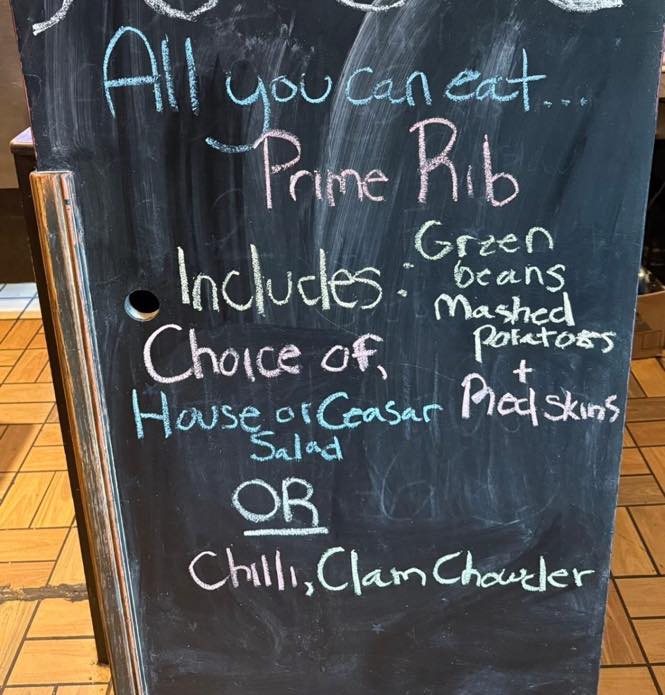 All you can eat...
Prime Rib
Includes:
Green
beans
Mashed
Potatoes
+
Red skins
Choice of,
House or Ceasar
Salad
OR
Chilli, Clam Chowder